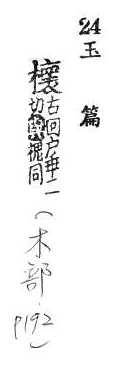 24
玉篇
櫰
古回戶乖二
切槐同
(木部
P192)